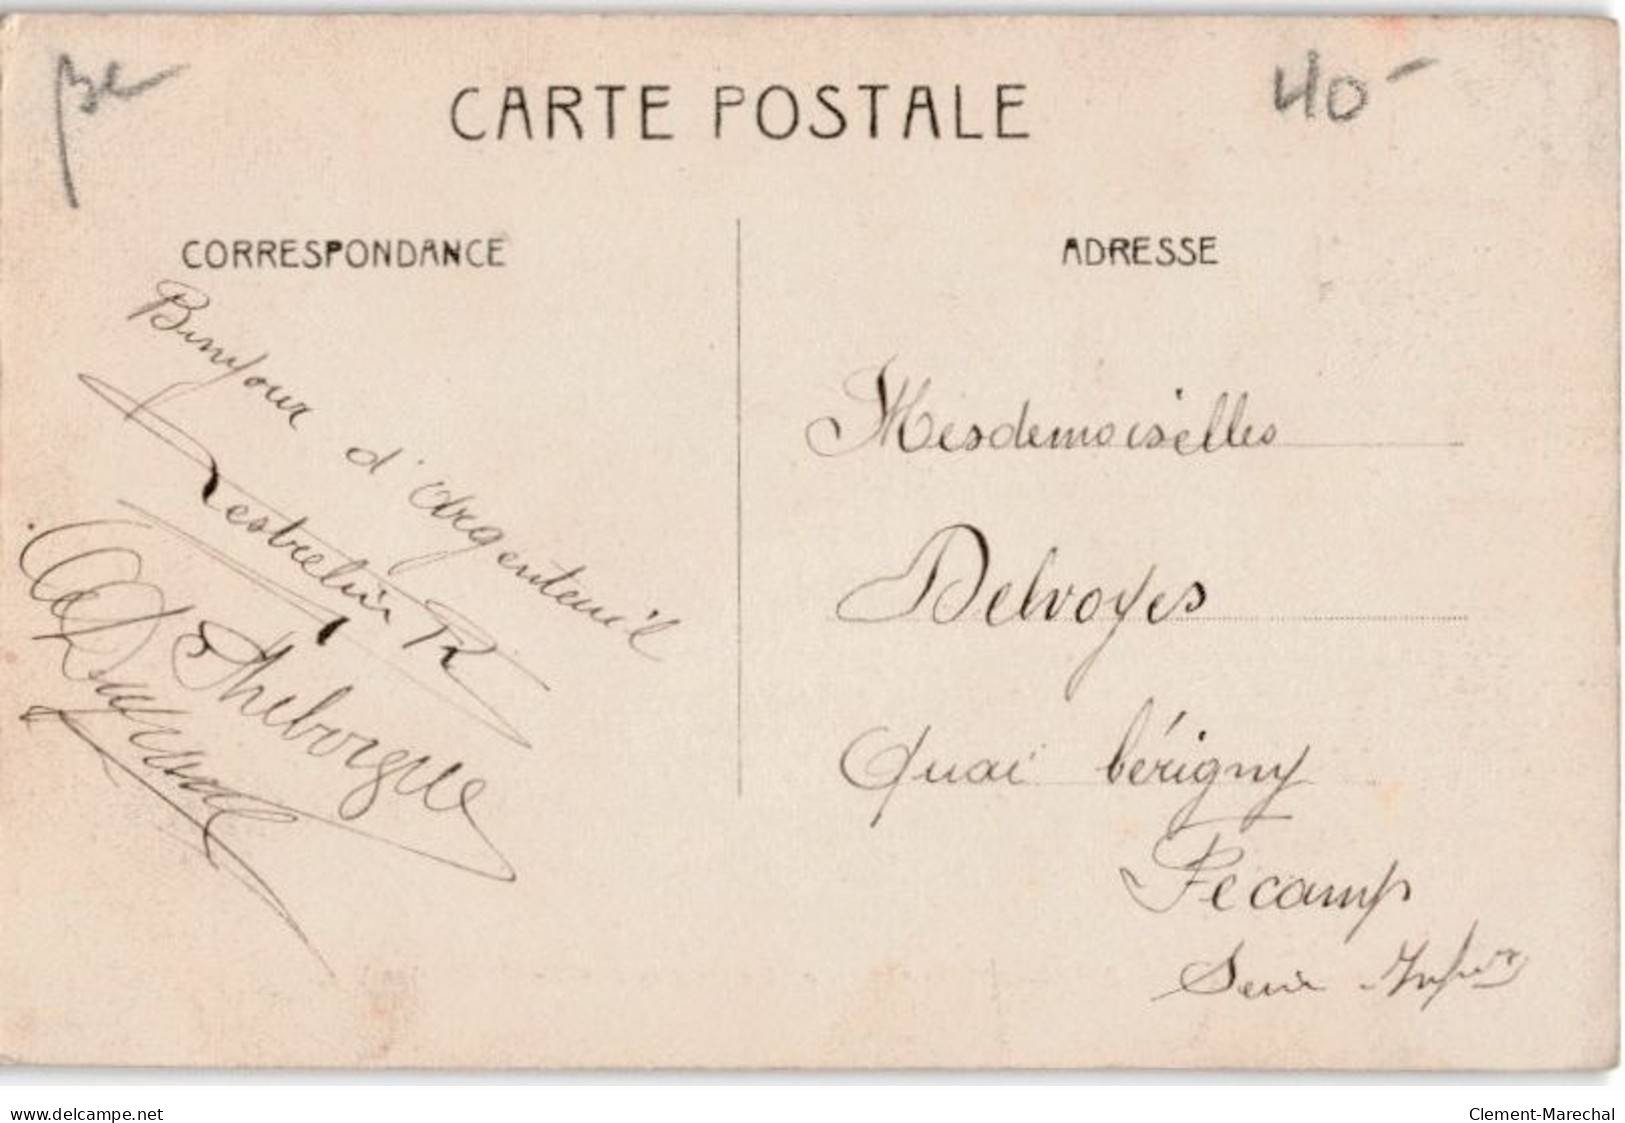 40-
CARTE POSTALE
CORRESPONDANCE
Bonjour d'Argenteuil
Lestrelin R
Theborgne
ADRESSE
Mesdemoiselles
Delvoyes
Quai bérigny
Fecamp
Seine Infre
www.delcampe.net
Clement-Marechal